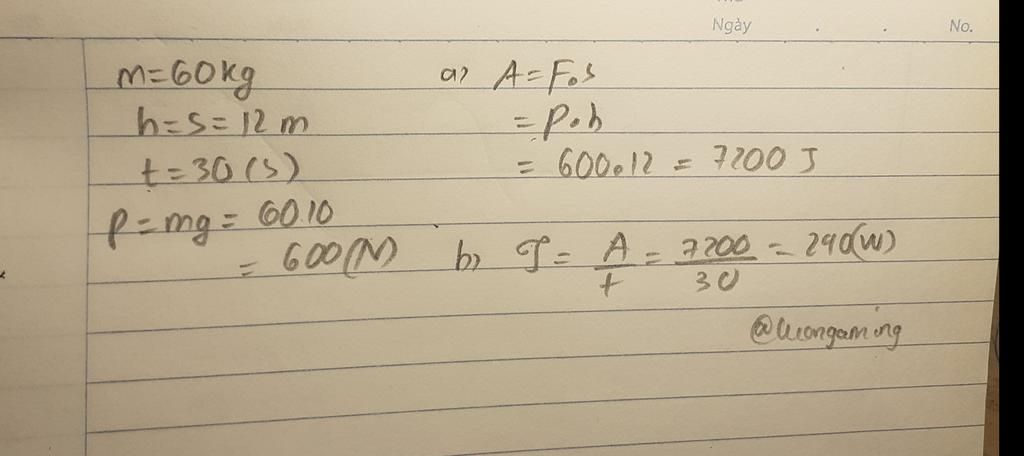 Ngày . . No.
m=60kg
h=s=12 m
t=30(s)
P=mg=60.10
=600(N)
a) A=F.s
=P.h
=600.12=7200 J
b) P=A/t=7200/30=240(W)
@luongaming